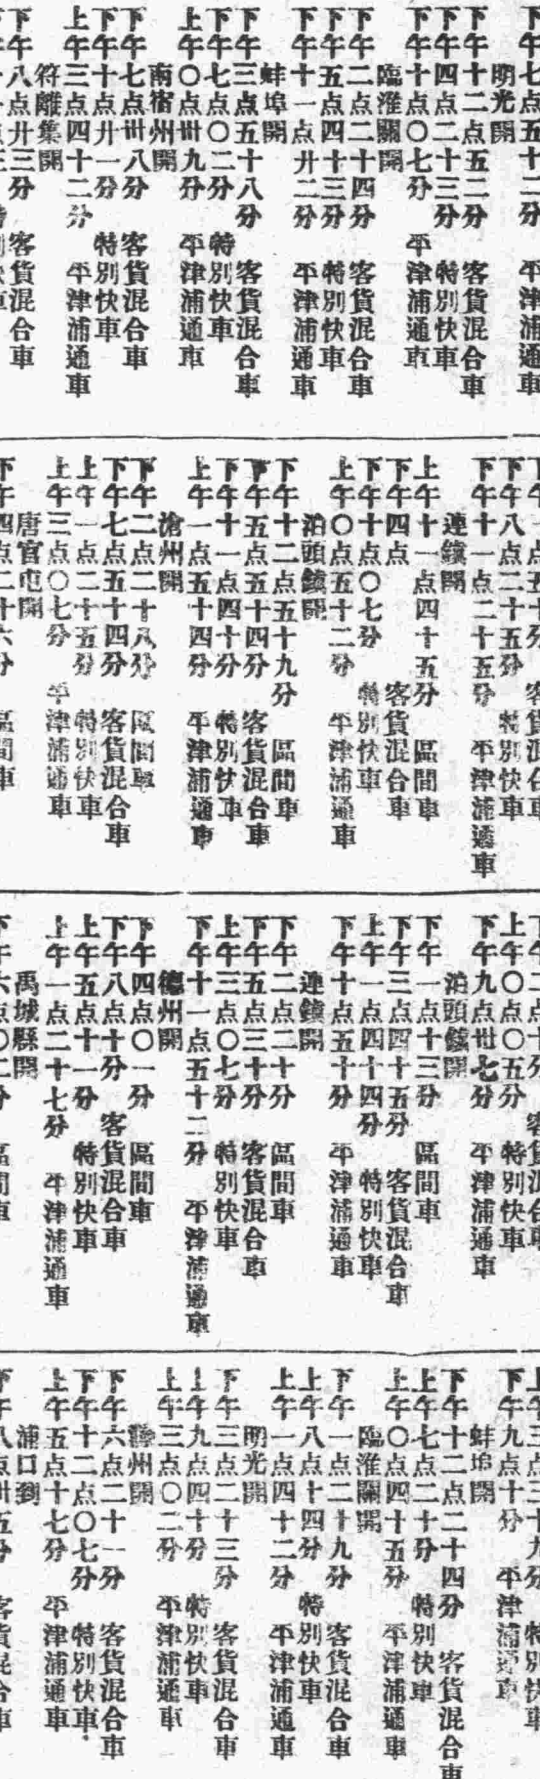 下午七点五十二分　平津浦通車
明光開
下午十二点五二分　客貨混合車
下午四点二十三分　特別快車
下午十点〇七分　平津浦通車
臨淮關開
下午二点二十四分　客貨混合車
下午五点四十三分　特別快車
下午十一点廿二分　平津浦通車
蚌埠開
下午三点五十八分　客貨混合車
下午七点〇二分　特別快車
上午〇点卅九分　平津浦通車
南宿州開
下午七点卅八分　客貨混合車
下午十点卅一分　特別快車
上午三点四十二分　平津浦通車
符離集開
下午八点廿三分　客貨混合車
下午八点二十五分　特別快車
下午十一点二十五分　平津浦通車
連鎮開
上午十一点四十五分　區間車
下午四点　客貨混合車
下午十点〇七分　特別快車
上午〇点五十二分　平津浦通車
泊頭鎮開
下午十二点五十九分　區間車
下午五点五十四分　客貨混合車
下午十一点四十分　特別快車
上午一点五十四分　平津浦通車
滄州開
下午二点二十八分　區間車
下午七点五十四分　客貨混合車
上午一点二十五分　特別快車
上午三点〇七分　平津浦通車
唐官屯開
下午四点二十六分　區間車
上午〇点〇五分　特別快車
下午九点卅七分　平津浦通車
泊頭鎮開
下午一点十三分　區間車
下午三点四十五分　客貨混合車
上午一点四十四分　特別快車
下午十点五十分　平津浦通車
連鎮開
下午二点二十分　區間車
下午五点三十分　客貨混合車
上午三点〇七分　特別快車
下午十一点五十二分　平津浦通車
德州開
下午四点〇一分　區間車
下午八点十分　客貨混合車
上午五点十一分　特別快車
上午一点二十七分　平津浦通車
禹城縣開
下午六点〇二分　區間車
下午九点十分　平津浦通車
蚌埠開
下午十二点二十四分　客貨混合車
上午七点二十分　特別快車
上午〇点四十五分　平津浦通車
臨淮關開
下午一点二十九分　客貨混合車
上午八点十四分　特別快車
上午一点四十二分　平津浦通車
明光開
下午三点二十三分　客貨混合車
上午九点四十分　特別快車
上午三点〇二分　平津浦通車
滁州開
下午六点二十一分　客貨混合車
下午十二点〇七分　特別快車
上午五点十七分　平津浦通車
浦口到
下午八点卅五分　客貨混合車